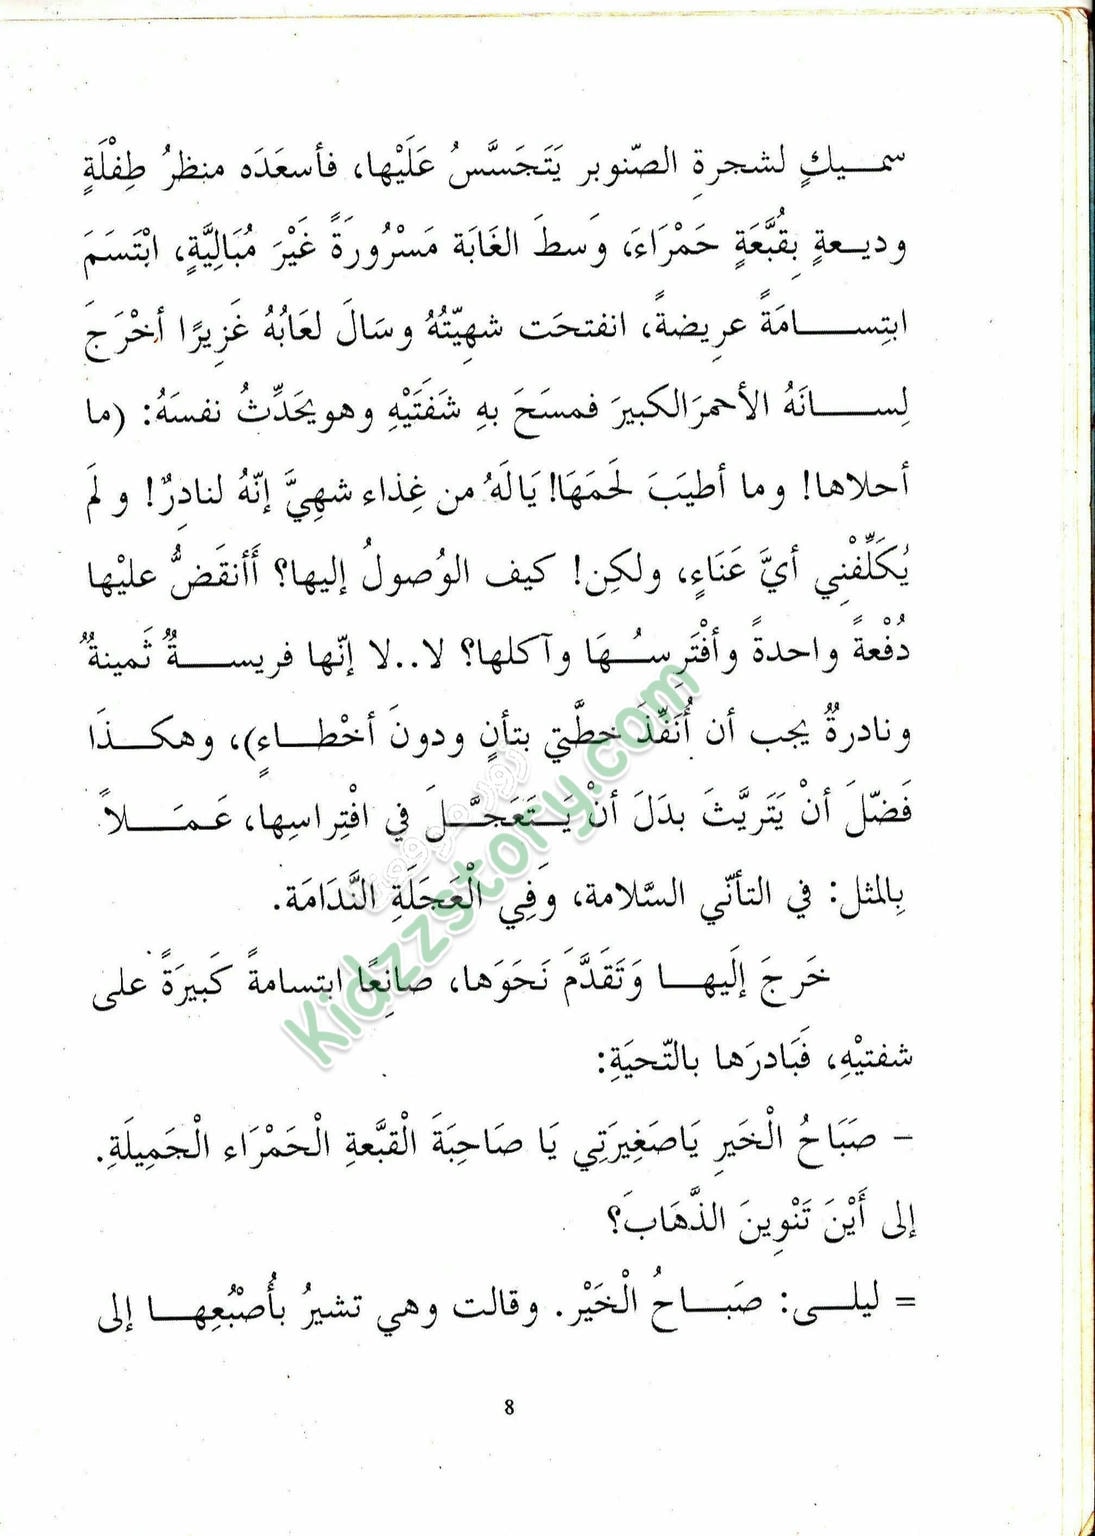 سميكٍ لشجرةِ الصّنوبر يَتَجَسَّسُ عَلَيْها، فأسعَدَه منظرُ طِفْلَةٍ
وديعةٍ بِقُبَّعَةٍ حَمْرَاءَ، وَسطَ الغَابَة مَسْرُورَةً غَيْرَ مُبَالِيَّةٍ، ابْتَسَمَ
ابتِسامَةً عرِيضةً، انفتحَت شهِيّتُهُ وسَالَ لعَابُهُ غَزِيرًا أخْرَجَ
لِسانَهُ الأحمرَالكبيرَ فمسَحَ بهِ شَفَتَيْهِ وهويحَدِّثُ نفسَهُ: (ما
أحلاها! وما أطيَبَ لَحمَهَا! يَالَهُ من غِذاء شهِيَّ إنّهُ لنادِرٌ! و لَم
يُكَلِّفْنِي أيَّ عَنَاءٍ، ولكِن! كيف الوُصولُ إليها؟ أَأنقَضُّ عليْها
دُفْعةً واحدةً وأفْتَرِسُهَا وآكلها؟ لا..لا إنّها فريسةٌ ثَمينةٌ
ونادرةٌ يجب أن أُنَفِّذَ خطَّتي بتأنٍ ودونَ أخْطاءٍ)، وهكذَا
فَضّلَ أنْ يَتَريَّثَ بدَلَ أنْ يَتَعَجَّلَ في افْتِراسِها، عَمَلاً
بِالمثل: في التأنّي السَّلامة، وَفِي الْعَجَلَةِ النَّدَامَة.
خَرجَ إلَيها وَتَقَدَّمَ نَحَوَها، صانِعًا ابتسامةً كَبيرَةً على
شفتيْهِ، فَبَادرَها بالتّحيَةِ:
– صَبَاحُ الْخَيرِ يَاصَغِيرَتِي يَا صَاحِبَةَ الْقبَّعةِ الْحَمْرَاء الْجَمِيلَةِ.
إلى أَيْنَ تَنْوِينَ الذَّهَابَ؟
= ليلى: صَباحُ الْخَيْر. وقالت وهي تشيرُ بأُصْبُعِها إلى
8
Kidzzstory.com